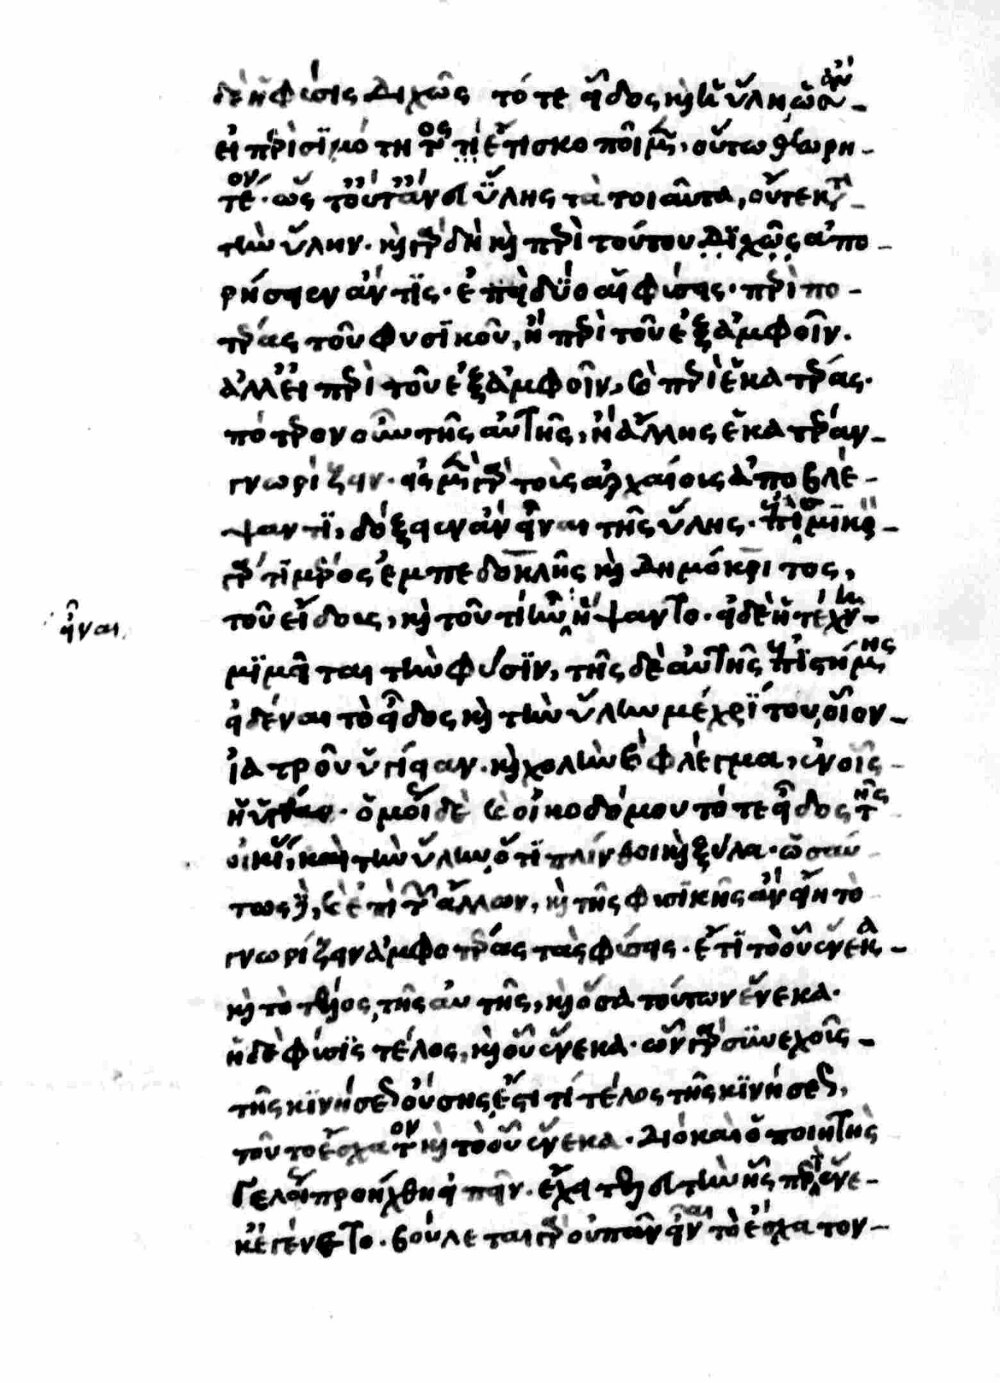 δὲ ἡ φύσις διχῶς τό τε εἶδος καὶ ἡ ὕλη, ὡς ἂν
εἰ περὶ σιμότητος τί ἐστι σκοποῖμεν, οὕτω θεωρη-
τέον· ὥστ' οὔτ' ἄνευ ὕλης τὰ τοιαῦτα, οὔτε κατὰ
τὴν ὕλην· καὶ γὰρ δὴ καὶ περὶ τούτου διχῶς ἀπο-
ρήσειεν ἄν τις· ἐπεὶ δύο αἱ φύσεις· περὶ πο-
τέρας τοῦ φυσικοῦ, ἢ περὶ τοῦ ἐξ ἀμφοῖν.
ἀλλ' εἰ περὶ τοῦ ἐξ ἀμφοῖν, καὶ περὶ ἑκατέρας·
πότερον οὖν τῆς αὐτῆς, ἢ ἄλλης ἑκατέραν
γνωρίζειν· εἰς μὲν γὰρ τοὺς ἀρχαίους ἀποβλέ-
ψαντι, δόξειεν ἂν εἶναι τῆς ὕλης· ἐπὶ μικρὸν
γάρ τι μέρος ἐμπεδοκλῆς καὶ Δημόκριτος,
τοῦ εἴδους, καὶ τοῦ τί ἦν εἶναι ἥψαντο· εἰ δὲ ἡ τέχνη
εἶναι
μιμεῖται τὴν φύσιν, τῆς δὲ αὐτῆς ἐπιστήμης
εἰδέναι τὸ εἶδος καὶ τὴν ὕλην μέχρι του, οἷον
ἰατροῦ ὑγίειαν· καὶ χολὴν καὶ φλέγμα, ἐν οἷς
ἡ ὑγίεια· ὁμοίως δὲ καὶ οἰκοδόμου τό τε εἶδος τῆς
οἰκίας, καὶ τὴν ὕλην, ὅτι πλίνθοι καὶ ξύλα· ὡσαύ
τως δὲ, καὶ ἐπὶ τῶν ἄλλων, καὶ τῆς φυσικῆς ἂν εἴη τὸ
γνωρίζειν ἀμφοτέρας τὰς φύσεις· ἔτι τὸ οὗ ἕνεκα
καὶ τὸ τέλος, τῆς αὐτῆς, καὶ ὅσα τούτων ἕνεκα·
ἡ δὲ φύσις τέλος, καὶ οὗ ἕνεκα· ὧν γὰρ συνεχοῦς
τῆς κινήσεως οὔσης ἔστι τί τέλος τῆς κινήσεως,
τοῦτο ἔσχατον καὶ τὸ οὗ ἕνεκα· Διὸ καὶ ὁ ποιητὴς
Γελοίως προήχθη εἰπεῖν· ἔχει τελευτὴν ἧς περ οὕνε-
κ' ἐγένετο· βούλεται γὰρ οὐ πᾶν εἶναι τὸ ἔσχατον